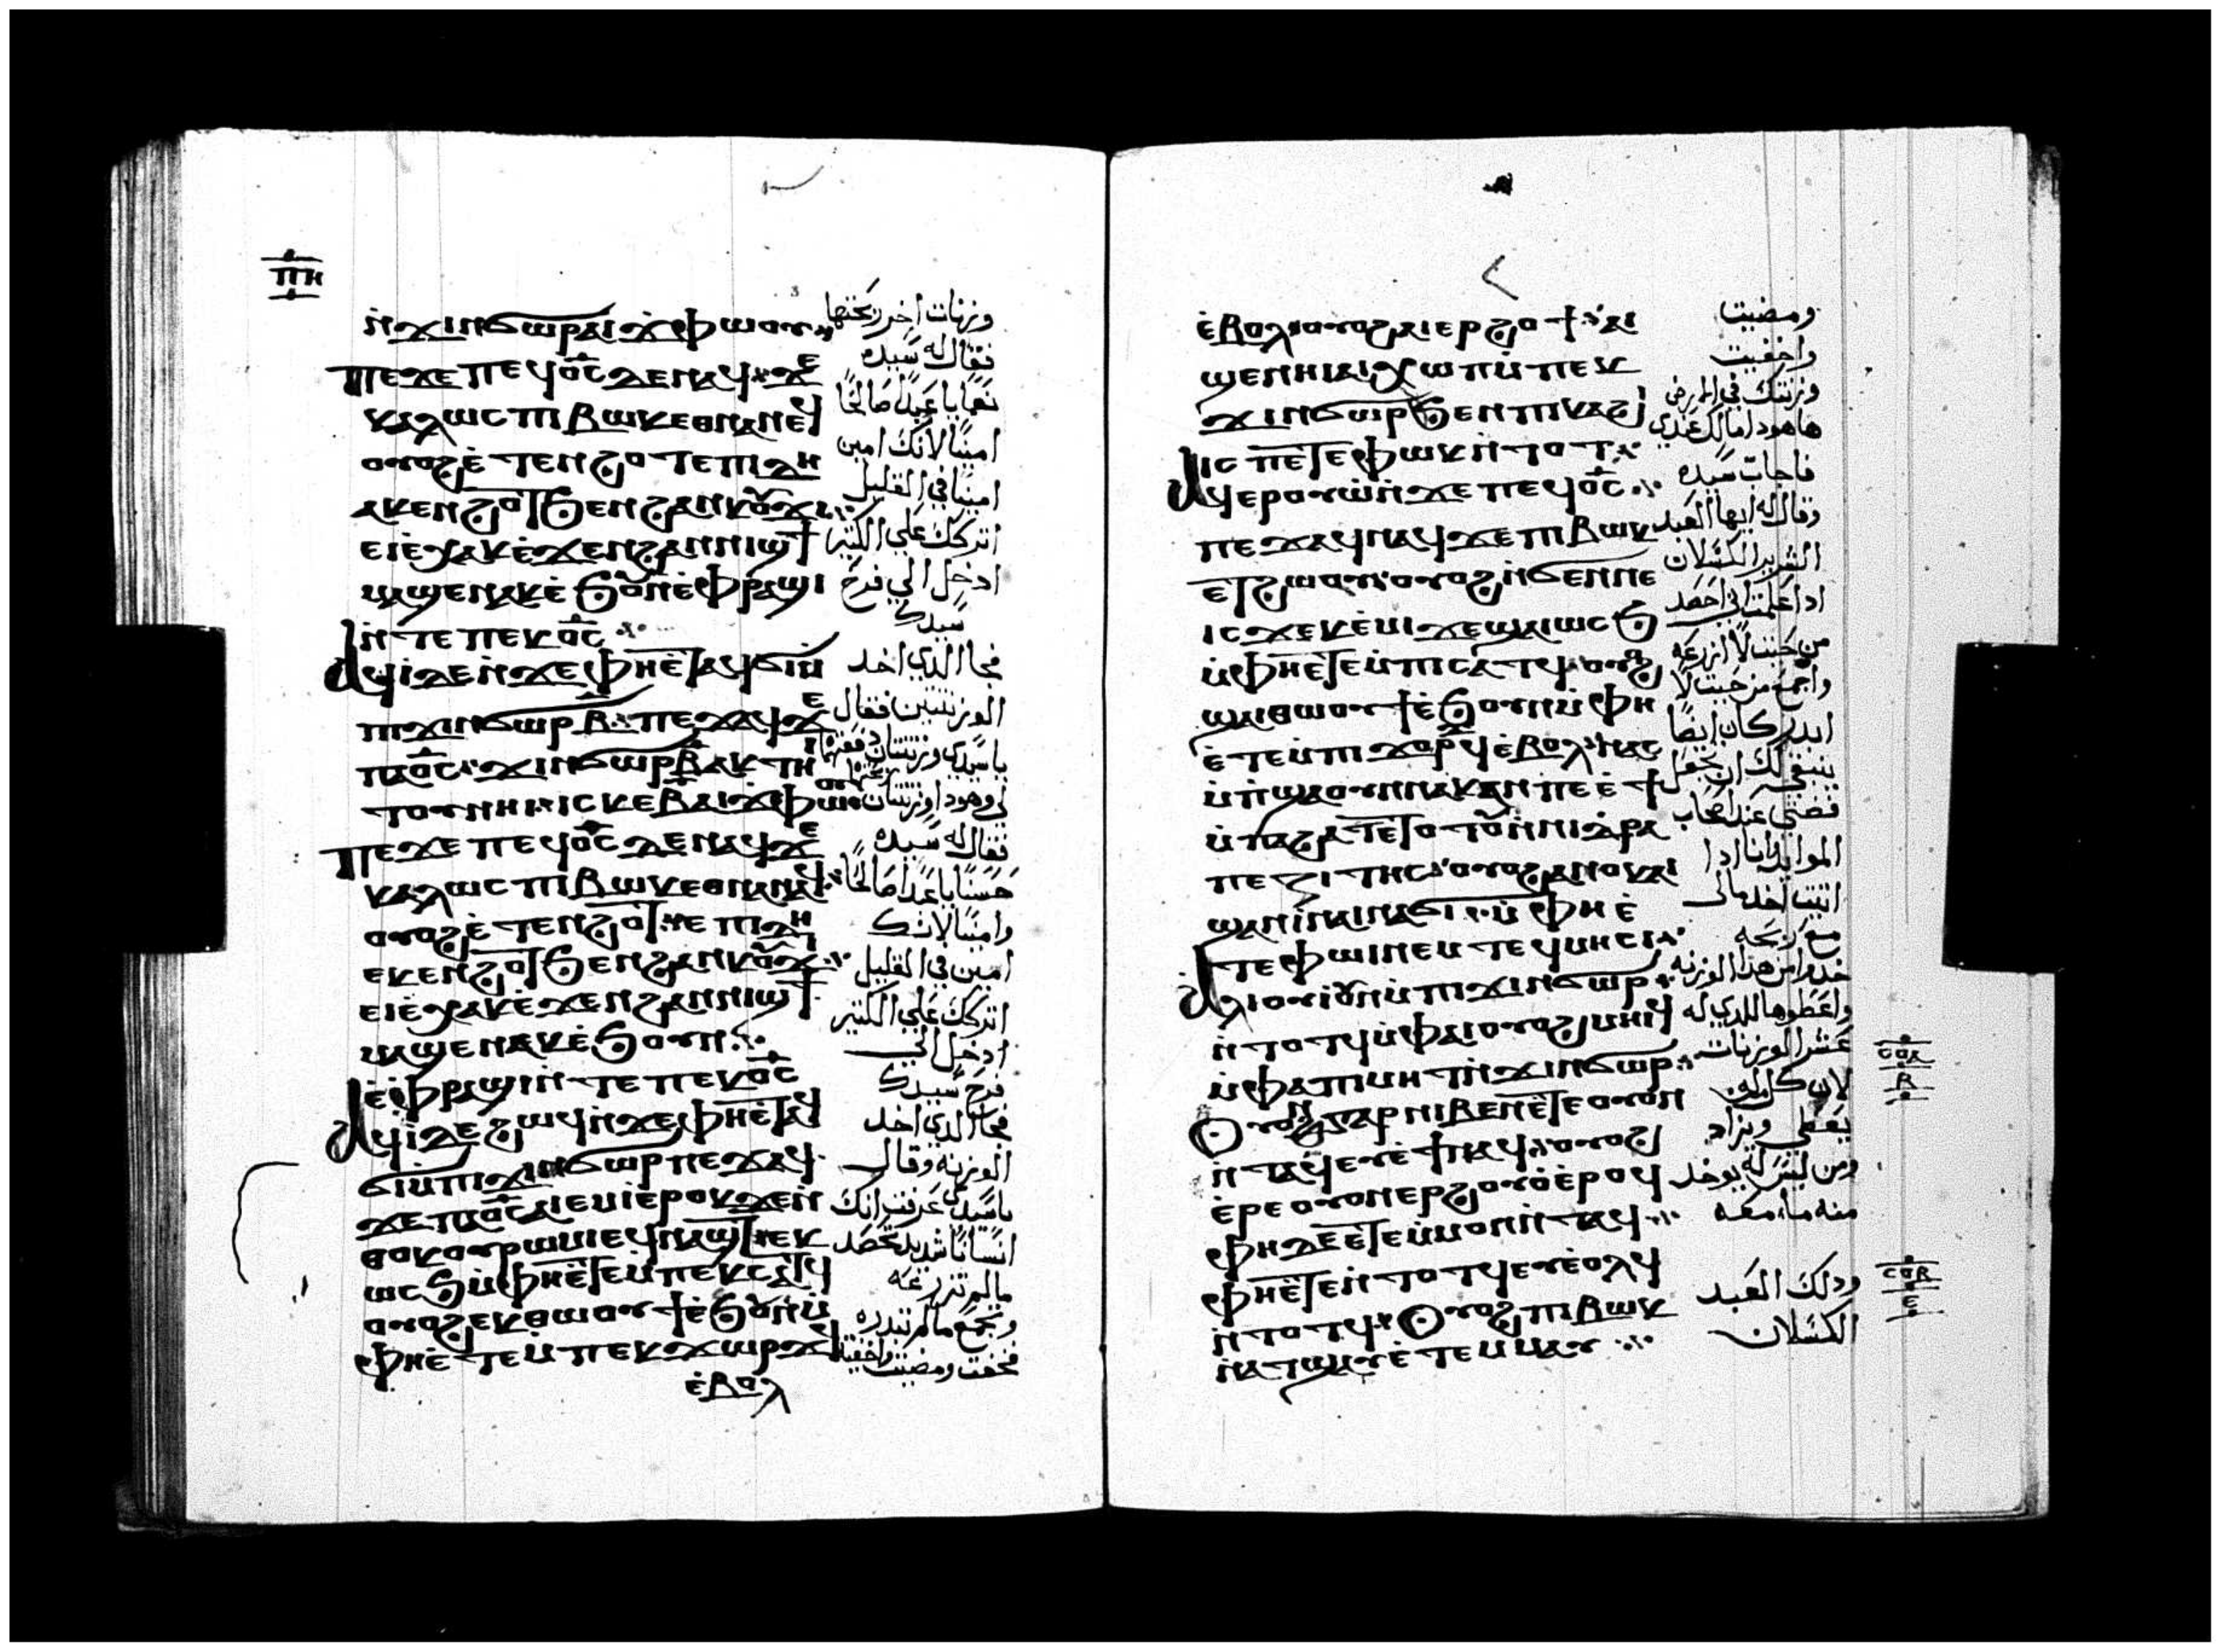 ⲡⲏ
ⲛ̇ϫⲓⲛϭⲱⲣⲁⲓϫⲫⲱⲟⲩ
ⲡⲉϫⲉⲡⲉϥⲟ̅ⲥ̅ⲇⲉⲛⲁϥϫⲉ
ⲕⲁⲗⲱⲥⲡⲓⲃⲱⲕⲉⲑⲛⲁⲛⲉϥ
ⲟⲩⲟϩⲉ̇ⲧⲉⲛϩⲟⲧⲉⲡⲓⲇⲏ
ⲁⲕⲉⲛϩⲟⲧϧⲉⲛϩⲁⲛⲕⲟⲩϫⲓ
ⲉⲓⲉ̇ⲭⲁⲕⲉ̇ϫⲉⲛϩⲁⲛⲛⲓϣϯ
ⲙⲁϣⲉⲛⲁⲕⲉ̇ϧⲟⲩⲛⲉ̇ⲫⲣⲁϣⲓ
ⲛ̇ⲧⲉⲡⲉⲕⲟ̅ⲥ̅
ⲁϥⲓ̇ⲇⲉⲛ̇ϫⲉⲫⲏⲉ̇ⲧⲁϥϭⲓⲙ̇
ⲡⲓϫⲓⲛϭⲱⲣⲃ̅ⲡⲉϫⲁϥϫⲉ
ⲡⲁⲟ̅ⲥ̅ϫⲓⲛϭⲱⲣⲃ̅ⲁⲕⲧⲏ
ⲧⲟⲩⲛⲏⲓⲓⲥⲕⲉⲃ̅ⲁⲓϫⲫⲱⲟⲩ
ⲡⲉϫⲉⲡⲉϥⲟ̅ⲥ̅ⲇⲉⲛⲁϥϫⲉ
ⲕⲁⲗⲱⲥⲡⲓⲃⲱⲕⲉⲑⲛⲁⲛⲁϥ
ⲟⲩⲟϩⲉ̇ⲧⲉⲛϩⲟⲧⲉⲡⲓⲇⲏ
ⲉⲕⲉⲛϩⲟⲧϧⲉⲛϩⲁⲛⲕⲟⲩϫⲓ
ⲉⲓⲉ̇ⲭⲁⲕⲉ̇ϫⲉⲛϩⲁⲛⲛⲓϣϯ
ⲙⲁϣⲉⲛⲁⲕⲉ̇ϧⲟⲩⲛ
ⲉ̇ⲫⲣⲁϣⲓⲛ̇ⲧⲉⲡⲉⲕⲟ̅ⲥ̅
ⲁϥⲓ̇ⲇⲉϩⲱϥⲛ̇ϫⲉⲫⲏⲉ̇ⲧⲁϥ
ϭⲓⲙ̇ⲡⲓϫⲓⲛϭⲱⲣⲡⲉϫⲁϥ
ϫⲉⲡⲁⲟ̅ⲥ̅ⲁⲓⲉⲙⲓⲉ̇ⲣⲟⲕϫⲉⲛ̇
ⲑⲟⲕⲟⲩⲣⲱⲙⲓⲉϥⲛⲁϣⲧⲉⲕ
ⲱⲥϧⲙ̇ⲫⲏⲉ̇ⲧⲉⲙ̇ⲡⲉⲕⲥⲁⲧϥ
ⲟⲩⲟϩⲉⲕⲑⲱⲟⲩϯⲉ̇ϧⲟⲩⲛⲙ̇
ⲫⲏⲉ̇ⲧⲉⲙ̇ⲡⲉⲕϫⲱⲣϫϥ
ⲉ̇ⲃⲟⲗ
وزنات اخر ربحتها
فقال له سيده
نعما يا عبدا صالحا
امينا لانك امين
امينا في القليل
اتركك علي الكتير
ادخل الي فرح
سيدك
فجا الذي اخد
الوزنتين فقال
يا سيدي وزنتان دفعتهما
لي وهودا وزنتان
فقال له سيده
حسنا يا عبدا صالحا
وامينا لانك
امين في القليل
اتركك علي الكتير
ادخل الي
فرح سيدك
فجا الذي اخد
الوزنه وقال
يا سيدي عرفت انك
انسانا شديد تحصد
مالم تزرعه
وتجمع مالم تبدره
فخفت ومضيت
ⲉ̇ⲃⲟⲗⲟⲩⲟϩⲁⲓⲉⲣϩⲟϯⲁⲓ
ϣⲉⲛⲏⲓⲁⲓⲭⲱⲡⲙ̇ⲡⲉⲕ
ϫⲓⲛϭⲱⲣϧⲉⲛⲡⲓⲕⲁϩⲓ
ⲓⲥⲡⲉⲧⲉⲫⲱⲕⲛ̇ⲧⲟⲧ
ⲁϥⲉⲣⲟⲩⲱⲛ̇ϫⲉⲡⲉϥⲟ̅ⲥ̅
ⲡⲉϫⲁϥⲛⲁϥϫⲉⲡⲓⲃⲱⲕ
ⲉⲧϩⲱⲟⲩⲟⲩⲟϩⲛ̇ϭⲉⲛⲛⲉ
ⲓⲥϫⲉⲕⲉ̇ⲙⲓϫⲉϣⲁⲓⲱⲥϧ
ⲙ̇ⲫⲏⲉ̇ⲧⲉⲙ̇ⲡⲓⲥⲁⲧϥⲟⲩⲟϩ
ϣⲁⲓⲑⲱⲟⲩϯⲉ̇ϧⲟⲩⲛⲙ̇ⲫⲏ
ⲉ̇ⲧⲉⲙ̇ⲡⲓϫⲟⲣϥⲉ̇ⲃⲟⲗⲛⲁⲥ
ⲙ̇ⲡ̇ϣⲁⲟⲩⲛⲛⲁⲕⲁⲛⲡⲉⲉ̇ϯ
ⲙ̇ⲡⲁϩⲁⲧⲉ̇ⲧⲟⲧⲟⲩⲛ̇ⲛⲓⲑⲣⲁ
ⲡⲉⲍⲓⲧⲏⲥⲟⲩⲟϩⲁⲛⲟⲕⲁⲓ
ϣⲁⲛⲓ̇ⲛⲁⲓⲛⲁϭⲓⲙ̇ⲫⲏⲉ̇
ⲧⲉⲫⲱⲓⲛⲉⲙⲧⲉϥⲙⲏⲥⲓ
ⲁⲗⲓⲟⲩⲓ̇ⲟⲩⲛⲙ̇ⲡⲓϫⲓⲛϭⲱⲣ
ⲛ̇ⲧⲟⲧϥⲙ̇ⲫⲁⲓⲟⲩⲟϩⲙⲏⲓϥ
ⲙ̇ⲫⲁⲡⲓⲙⲏⲧⲛ̇ϫⲓⲛϭⲱⲣ
ⲟⲩⲟⲛⲅⲁⲣⲛⲓⲃⲉⲛⲉ̇ⲧⲉⲟⲩⲟⲛ
ⲛ̇ⲧⲁϥⲉⲩⲉ̇ϯⲛⲁϥⲟⲩⲟϩ
ⲉ̇ⲣⲉⲟⲩⲟⲛⲉⲣϩⲟⲩⲟⲉ̇ⲣⲟϥ
ⲫⲏⲇⲉⲉ̇ⲧⲉⲙ̇ⲙⲟⲛⲛ̇ⲧⲁϥ
ⲫⲏⲉ̇ⲧⲉⲛ̇ⲧⲟⲧϥⲉⲩⲉ̇ⲟⲗϥ
ⲛ̇ⲧⲟⲧϥⲟⲩⲟϩⲡⲓⲃⲱⲕ
ⲛ̇ⲁⲧϣⲁⲩⲉ̇ⲧⲉⲙⲙⲁⲩ
ومضيت
واخفيت
وزنتك في الارض
هاهودا مالك عندي
فاجاب سيده
وقال له ايها العبد
الشرير الكسلان
ادا علمت اني احصد
من حيت لا ازرعه
واجمع من حيت لا
ابدر كان ايضا
ينبغي لك ان تجعل
فضتي عند اصحاب
الموايد وانا ادا
اتيت اخد مالي
مع ربحه
خدوا من هدا الوزنه
واعطوها للدي له
عشر الوزنات
لان كل من له
يعطي ويزاد
ومن ليس له يوخد
منه ما معه
ودلك العبد
الكسلان
ⲥⲟⲁ
ⲃ
ⲥⲟⲃ
ⲉ